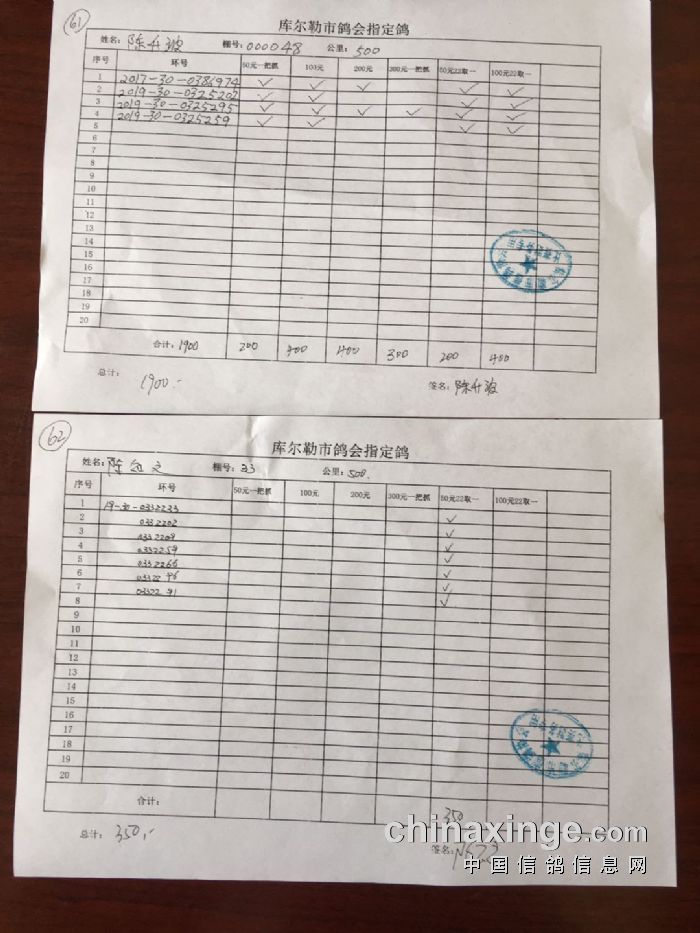 61
库尔勒市鸽会指定鸽
姓名: 陈升波 棚号: 000048 公里: 500
序号 环号 50元一把抓 100元 200元 300元一把抓 50元22取一 100元22取一
1 2017-30-0386974 ✓ ✓ ✓ ✓ ✓
2 2019-30-0325202 ✓ ✓ ✓ ✓
3 2019-30-0325295 ✓ ✓ ✓ ✓ ✓ ✓
4 2019-30-0325259 ✓ ✓ ✓ ✓
5
6
7
8
9
10
11
12
13
14
15
16
17
18
19
20
合计: 1900 200 400 400 300 200 400
总计: 1900.- 签名: 陈升波
62
库尔勒市鸽会指定鸽
姓名: 陈 棚号: 33 公里: 500
序号 环号 50元一把抓 100元 200元 300元一把抓 50元22取一 100元22取一
1 19-30-0332233 ✓
2 0332202 ✓
3 0332209 ✓
4 0332259 ✓
5 0332266 ✓
6 03322 96 ✓
7 03322 91 ✓
8
9
10
11
12
13
14
15
16
17
18
19
20
合计: 350
总计: 350.- 签名:
chinaxinge.com
中国信鸽信息网